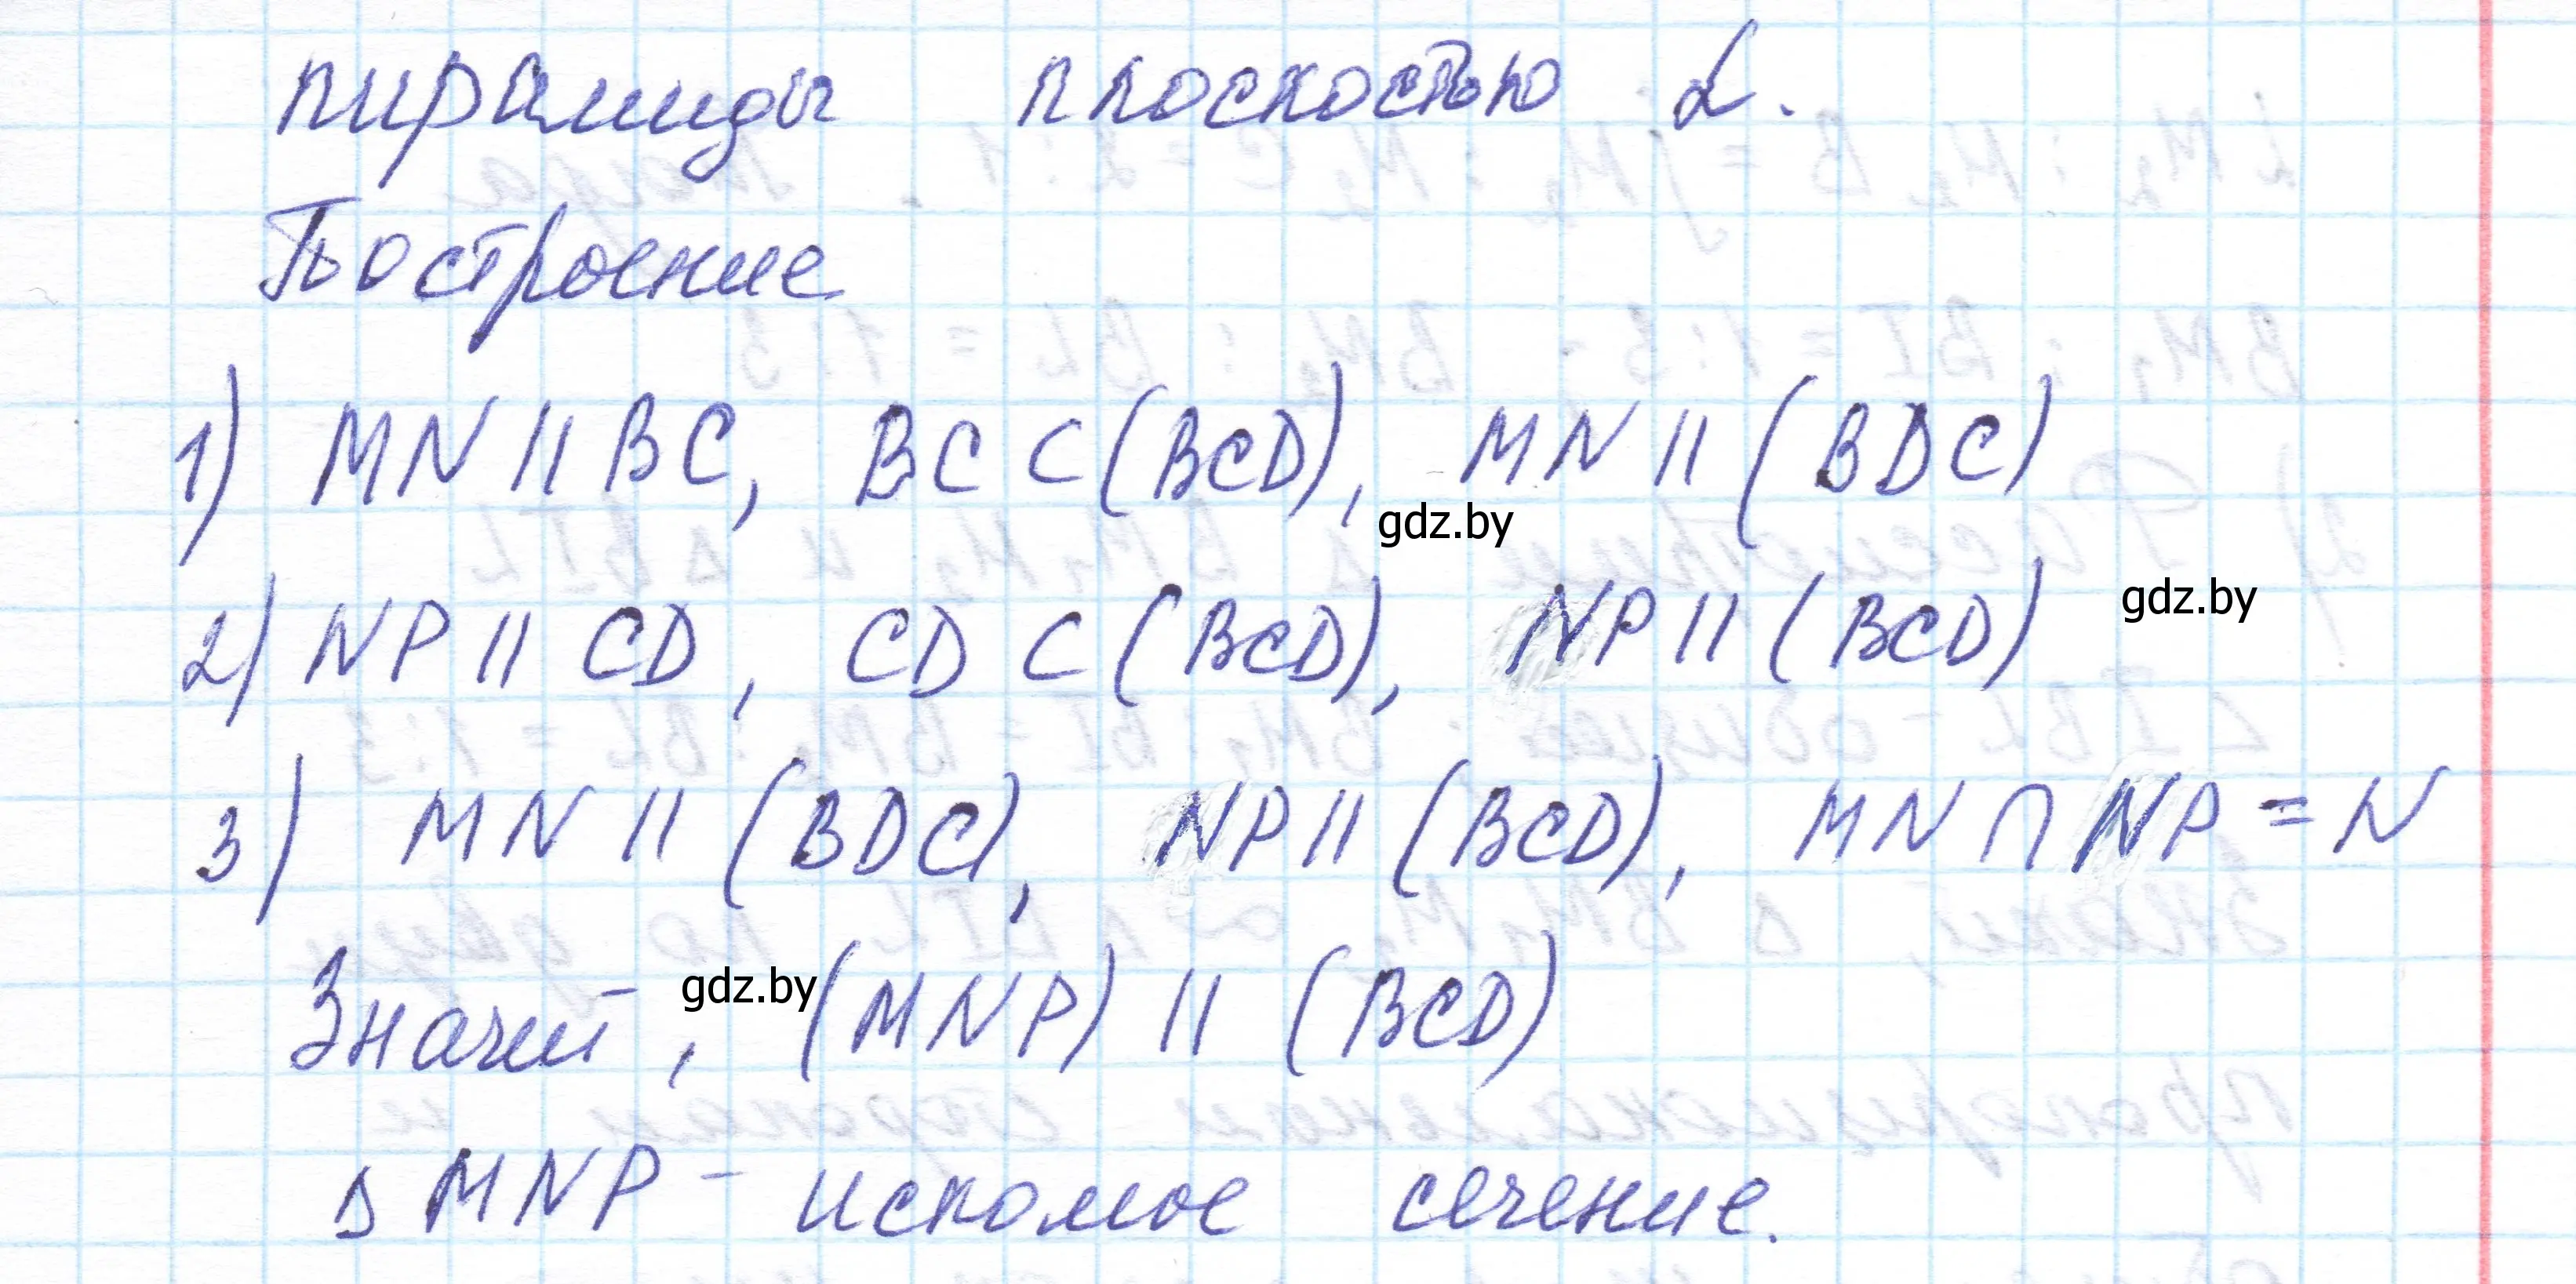 пирамиды плоскостью α.
Построение
1) MN || BC, BC ⊂ (BCD), MN || (BDC)
gdz.by
2) NP || CD, CD ⊂ (BCD), NP || (BCD)
gdz.by
3) MN || (BDC), NP || (BCD), MN ∩ NP = N
Значит, (MNP) || (BCD)
gdz.by
Δ MNP - искомое сечение.